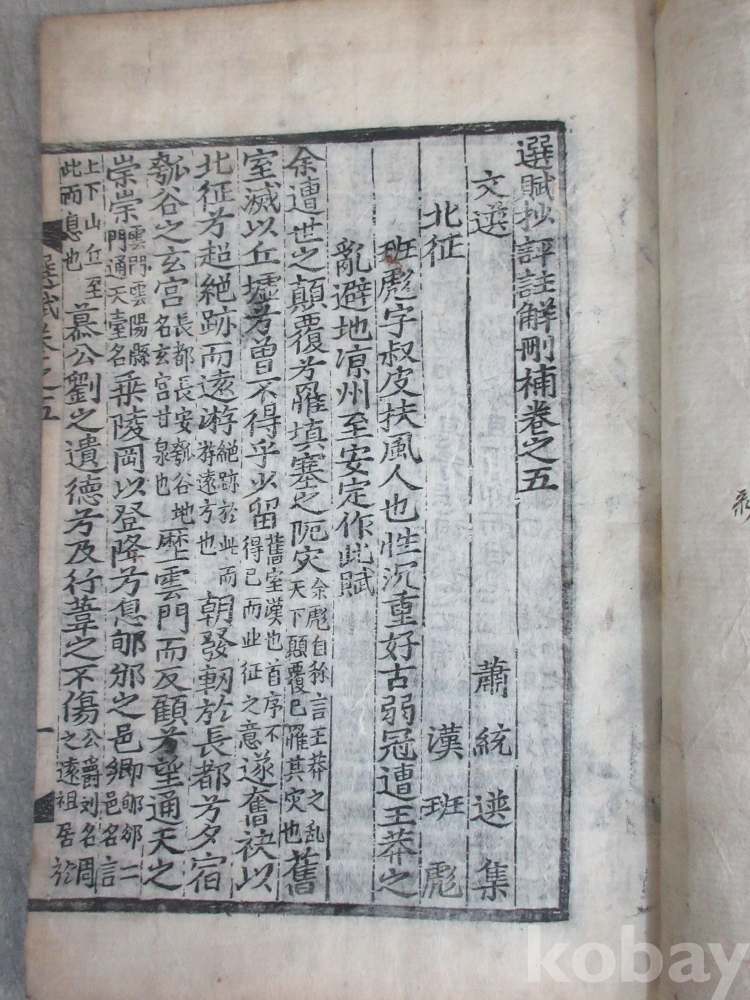 選賦抄評註解刪補卷之五
文選 蕭統選集
北征 漢班彪
班彪字叔皮扶風人也性沉重好古弱冠遭王莽之
亂避地凉州至安定作此賦
余遭世之顛覆兮罹塡塞之阨灾余彪自稱言王莽之亂天下顛覆已罹其灾也舊
室滅以丘墟兮曾不得乎少留舊室漢也首序不得已而北征之意遂奮袂以
北征兮超絶跡而遠游絶跡於此而游遠方也朝發軔於長都兮夕宿
瓠谷之玄宮長都長安瓠谷地名玄宮甘泉也歷雲門而反顧兮望通天之
崇崇雲門雲陽縣門通天臺名乘陵岡以登降兮息郇邠之邑鄕郇邠二邑名言
上下山丘至此而息也慕公劉之遺德兮及行葦之不傷公爵刘名周之遠祖居於
選賦卷之五
一
kobay